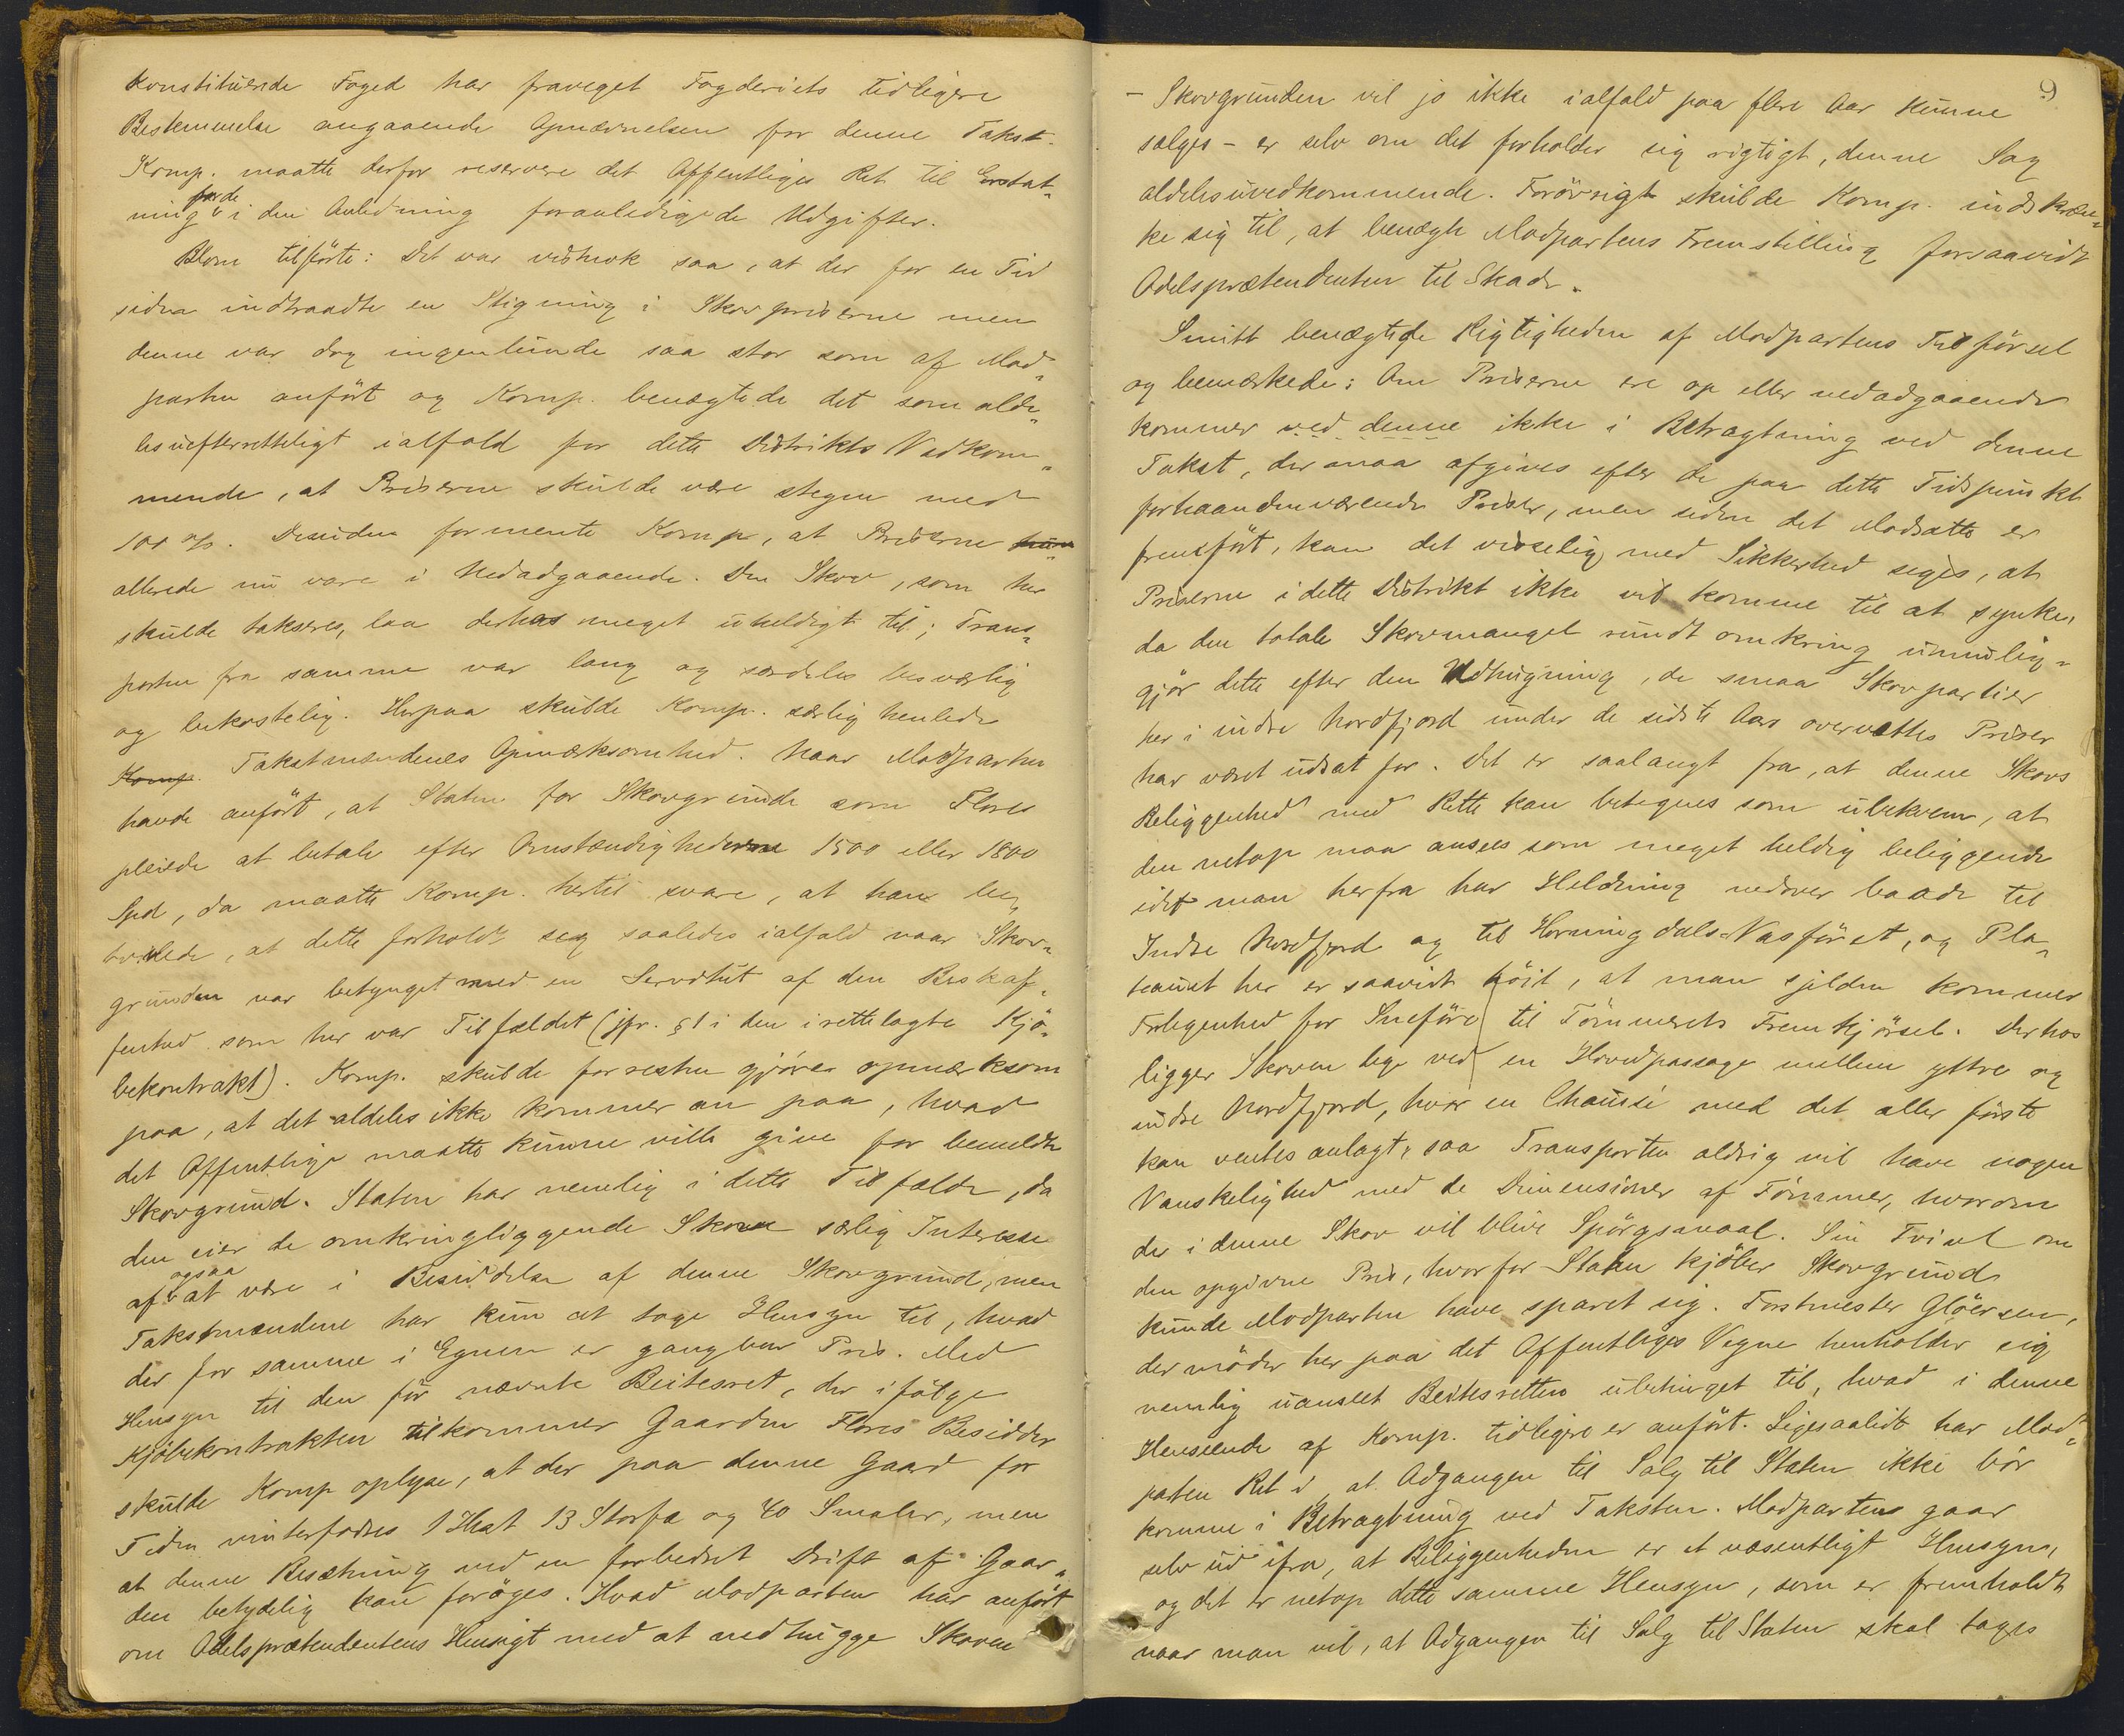 konstituerede Foged har fraveget Fogderiets tidligere
Bestemmelse angaaende Opnævnelsen for denne Takst.
Komp. maatte derfor reservere det Offentliges Ret til Erstat-
ning for de i den Anledning foranledigede Udgifter.
Blom tilførte: Det var vistnok saa, at der for en Tid
siden indtraadte en Stigning i Skovpriserne men
denne var dog ingenlunde saa stor som af Mod-
parten anført og Komp. benægtede det som alde-
les uefterretteligt ialfald for dette Distrikts Vedkom-
mende, at Priserne skulde være stegne med
100 %. Desuden formente Komp, at Priserne
allerede nu vare i Nedadgaaende. Den Skov, som her
skulde takseres, laa derhos meget uheldigt til; Trans-
porten fra samme var lang og særdeles besværlig
og bekostelig. Herpaa skulde Komp. særlig henlede
Komp. Takstmændenes Opmærksomhed. Naar Modparten
havde anført, at Staten for Skovgrunde som Flores
pleiede at betale efter Omstændighederne 1500 eller 1800
Spd, da maatte Komp. hertil svare, at han be-
tvivlede, at dette forholdt seg saaledes ialfald naar Skov-
grunden var betynget med en Servitut af den Beskaf-
fenhed som her var Tilfældet (jfr. § 1 i den i rettelagte Kjø-
bekontrakt). Komp. skulde forresten gjøre opmærksom
paa, at det aldeles ikke kommer an paa, hvad
det Offentlige maatte kunne ville give for bemeldte
Skovgrund. Staten har nemlig i dette Tilfælde, da
den eier de omkringliggende Skove særlig Interesse
af ogsaa at være i Besiddelse af denne Skovgrund, men
Takstmændene har kun at tage Hensyn til, hvad
der for samme i Egnen er gangbar Pris. Med
Hensyn til den før nævnte Beitesret, der ifølge
Kjøbekontrakten tilkommer Gaarden Flores Besidder
skulde Komp oplyse, at der paa denne Gaard for
Tiden vinterfødes 1 Hest 13 Storfæ og 40 Smaler, men
at denne Besætning ved en forbedret Drift af Gaar-
den betydelig kan forøges. Hvad Modparten har anført
om Odelsprætendentens Hensigt med at nedhugge Skoven
9
- Skovgrunden vil jo ikke ialfald paa flere Aar kunne
sælges - er selv om det forholder sig rigtigt, denne Sag
aldeles uvedkommende. Forøvrigt skulde Komp. indskræn-
ke sig til, at benægte Modpartens Fremstilling forsaavidt
Odelsprætendenten til Skade.
Smitt benægtede Rigtigheden af Modpartens Tilførsel
og bemærkede: Om Priserne ere op eller nedadgaaende
kommer ved denne ikke i Betragtning ved denne
Takst, der maa afgives efter de paa dette Tidspunkt
forhaandenværende Priser, men siden det Modsatte er
fremført, kan det visselig med Sikkerhed siges, at
Priserne i dette Distrikt ikke vil komme til at synke,
da den totale Skovmangel rundt omkring umulig-
gjør dette efter den Udhugning, de smaa Skovpartier
her i indre Nordfjord under de sidste Aars overvættes Priser
har været udsat for. Det er saalangt fra, at denne Skovs
Beliggenhed med Rette kan betegnes som ubekvem, at
den netop maa ansees som meget heldig beliggende
idet man herfra har Heldning nedover baade til
Indre Nordfjord og til Horningdals-Vasføret, og Pla-
teauet her er saavidt høit, at man sjelden kommer
Forlegenhed for Sneføre til Tømmerets Fremkjørsel. Derhos
ligger Skoven lige ved en Hovedpassage mellem yttre og
indre Nordfjord, hvor en Chaussé med det aller første
kan ventes anlagt, saa Transporten aldrig vil have nogen
Vanskelighed med de Dimensioner af Tømmer, hvorom
der i denne Skov vil blive Spørgsmaal. Sin Tvivl om
den opgivne Pris, hvorfor Staten kjøber Skovgrund
kunde Modparten have sparet sig. Forstmester Gløersen,
der møder her paa det Offentliges Vegne henholder sig
nemlig uanseet Beitesretten ubetinget til, hvad i denne
Henseende af Komp. tidligere er anført. Ligesaalidt har Mod-
parten Ret i, at Adgangen til Salg til Staten ikke bør
komme i Betragtning ved Taksten. Modparten gaar
selv ud ifra, at Beliggenheden er et væsentligt Hensyn,
og det er netop dette samme Hensyn, som er fremholdt
naar man vil, at Adgangen til Salg til Staten skal tages